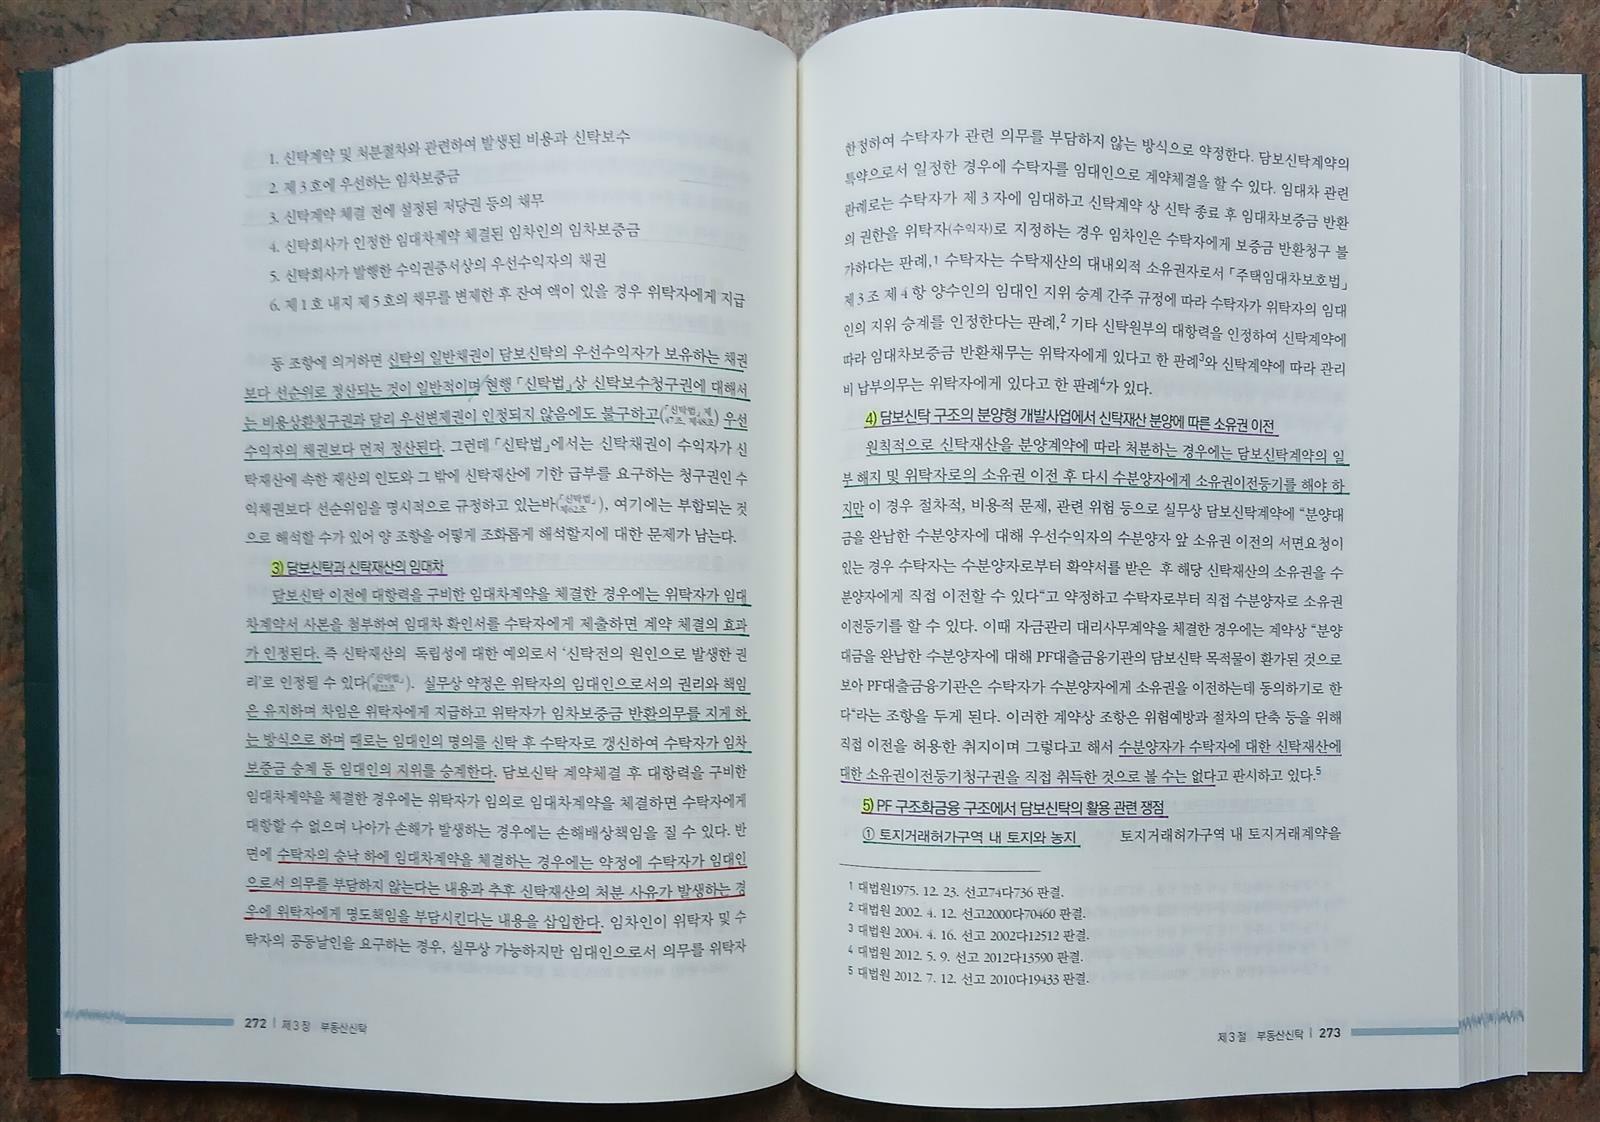 1. 신탁계약 및 처분절차와 관련하여 발생된 비용과 신탁보수
2. 제3호에 우선하는 임차보증금
3. 신탁계약 체결 전에 설정된 저당권 등의 채무
4. 신탁회사가 인정한 임대차계약 체결된 임차인의 임차보증금
5. 신탁회사가 발행한 수익권증서상의 우선수익자의 채권
6. 제1호 내지 제5호의 채무를 변제한 후 잔여 액이 있을 경우 위탁자에게 지급
등 조항에 의거하면 신탁의 일반채권이 담보신탁의 우선수익자가 보유하는 채권
보다 선순위로 정산되는 것이 일반적이며 현행 「신탁법」상 신탁보수청구권에 대해서
는 비용상환청구권과 달리 우선변제권이 인정되지 않음에도 불구하고(「신탁법」 제47조, 제48조) 우선
수익자의 채권보다 먼저 정산된다. 그런데 「신탁법」에서는 신탁채권이 수익자가 신
탁재산에 속한 재산의 인도와 그 밖에 신탁재산에 기한 급부를 요구하는 청구권인 수
익채권보다 선순위임을 명시적으로 규정하고 있는바(「신탁법」 제62조), 여기에는 부합되는 것
으로 해석할 수가 있어 양 조항을 어떻게 조화롭게 해석할지에 대한 문제가 남는다.
3) 담보신탁과 신탁재산의 임대차
담보신탁 이전에 대항력을 구비한 임대차계약을 체결한 경우에는 위탁자가 임대
차계약서 사본을 첨부하여 임대차 확인서를 수탁자에게 제출하면 계약 체결의 효과
가 인정된다. 즉 신탁재산의 독립성에 대한 예외로서 ‘신탁전의 원인으로 발생한 권
리’로 인정될 수 있다(「신탁법」 제22조). 실무상 약정은 위탁자의 임대인으로서의 권리와 책임
은 유지하며 차임은 위탁자에게 지급하고 위탁자가 임차보증금 반환의무를 지게 하
는 방식으로 하며 때로는 임대인의 명의를 신탁 후 수탁자로 갱신하여 수탁자가 임차
보증금 승계 등 임대인의 지위를 승계한다. 담보신탁 계약체결 후 대항력을 구비한
임대차계약을 체결한 경우에는 위탁자가 임의로 임대차계약을 체결하면 수탁자에게
대항할 수 없으며 나아가 손해가 발생하는 경우에는 손해배상책임을 질 수 있다. 반
면에 수탁자의 승낙 하에 임대차계약을 체결하는 경우에는 약정에 수탁자가 임대인
으로서 의무를 부담하지 않는다는 내용과 추후 신탁재산의 처분 사유가 발생하는 경
우에 위탁자에게 명도책임을 부담시킨다는 내용을 삽입한다. 임차인이 위탁자 및 수
탁자의 공동날인을 요구하는 경우, 실무상 가능하지만 임대인으로서 의무를 위탁자
272 | 제3장 부동산신탁
한정하여 수탁자가 관련 의무를 부담하지 않는 방식으로 약정한다. 담보신탁계약의
특약으로서 일정한 경우에 수탁자를 임대인으로 계약체결을 할 수 있다. 임대차 관련
판례로는 수탁자가 제3자에 임대하고 신탁계약 상 신탁 종료 후 임대차보증금 반환
의 권한을 위탁자(수익자)로 지정하는 경우 임차인은 수탁자에게 보증금 반환청구 불
가하다는 판례,1 수탁자는 수탁재산의 대내외적 소유권자로서 「주택임대차보호법」
제3조 제4항 양수인의 임대인 지위 승계 간주 규정에 따라 수탁자가 위탁자의 임대
인의 지위 승계를 인정한다는 판례,2 기타 신탁원부의 대항력을 인정하여 신탁계약에
따라 임대차보증금 반환채무는 위탁자에게 있다고 한 판례3와 신탁계약에 따라 관리
비 납부의무는 위탁자에게 있다고 한 판례4가 있다.
4) 담보신탁 구조의 분양형 개발사업에서 신탁재산 분양에 따른 소유권 이전
원칙적으로 신탁재산을 분양계약에 따라 처분하는 경우에는 담보신탁계약의 일
부 해지 및 위탁자로의 소유권 이전 후 다시 수분양자에게 소유권이전등기를 해야 하
지만 이 경우 절차적, 비용적 문제, 관련 위험 등으로 실무상 담보신탁계약에 “분양대
금을 완납한 수분양자에 대해 우선수익자의 수분양자 앞 소유권 이전의 서면요청이
있는 경우 수탁자는 수분양자로부터 확약서를 받은 후 해당 신탁재산의 소유권을 수
분양자에게 직접 이전할 수 있다“고 약정하고 수탁자로부터 직접 수분양자로 소유권
이전등기를 할 수 있다. 이때 자금관리 대리사무계약을 체결한 경우에는 계약상 “분양
대금을 완납한 수분양자에 대해 PF대출금융기관의 담보신탁 목적물이 환가된 것으로
보아 PF대출금융기관은 수탁자가 수분양자에게 소유권을 이전하는데 동의하기로 한
다“라는 조항을 두게 된다. 이러한 계약상 조항은 위험예방과 절차의 단축 등을 위해
직접 이전을 허용한 취지이며 그렇다고 해서 수분양자가 수탁자에 대한 신탁재산에
대한 소유권이전등기청구권을 직접 취득한 것으로 볼 수는 없다고 판시하고 있다.5
5) PF 구조화금융 구조에서 담보신탁의 활용 관련 쟁점
① 토지거래허가구역 내 토지와 농지 토지거래허가구역 내 토지거래계약을
1 대법원1975. 12. 23. 선고74다736 판결.
2 대법원 2002. 4. 12. 선고2000다70460 판결.
3 대법원 2004. 4. 16. 선고 2002다12512 판결.
4 대법원 2012. 5. 9. 선고 2012다13590 판결.
5 대법원 2012. 7. 12. 선고 2010다19433 판결.
제3절 부동산신탁 | 273